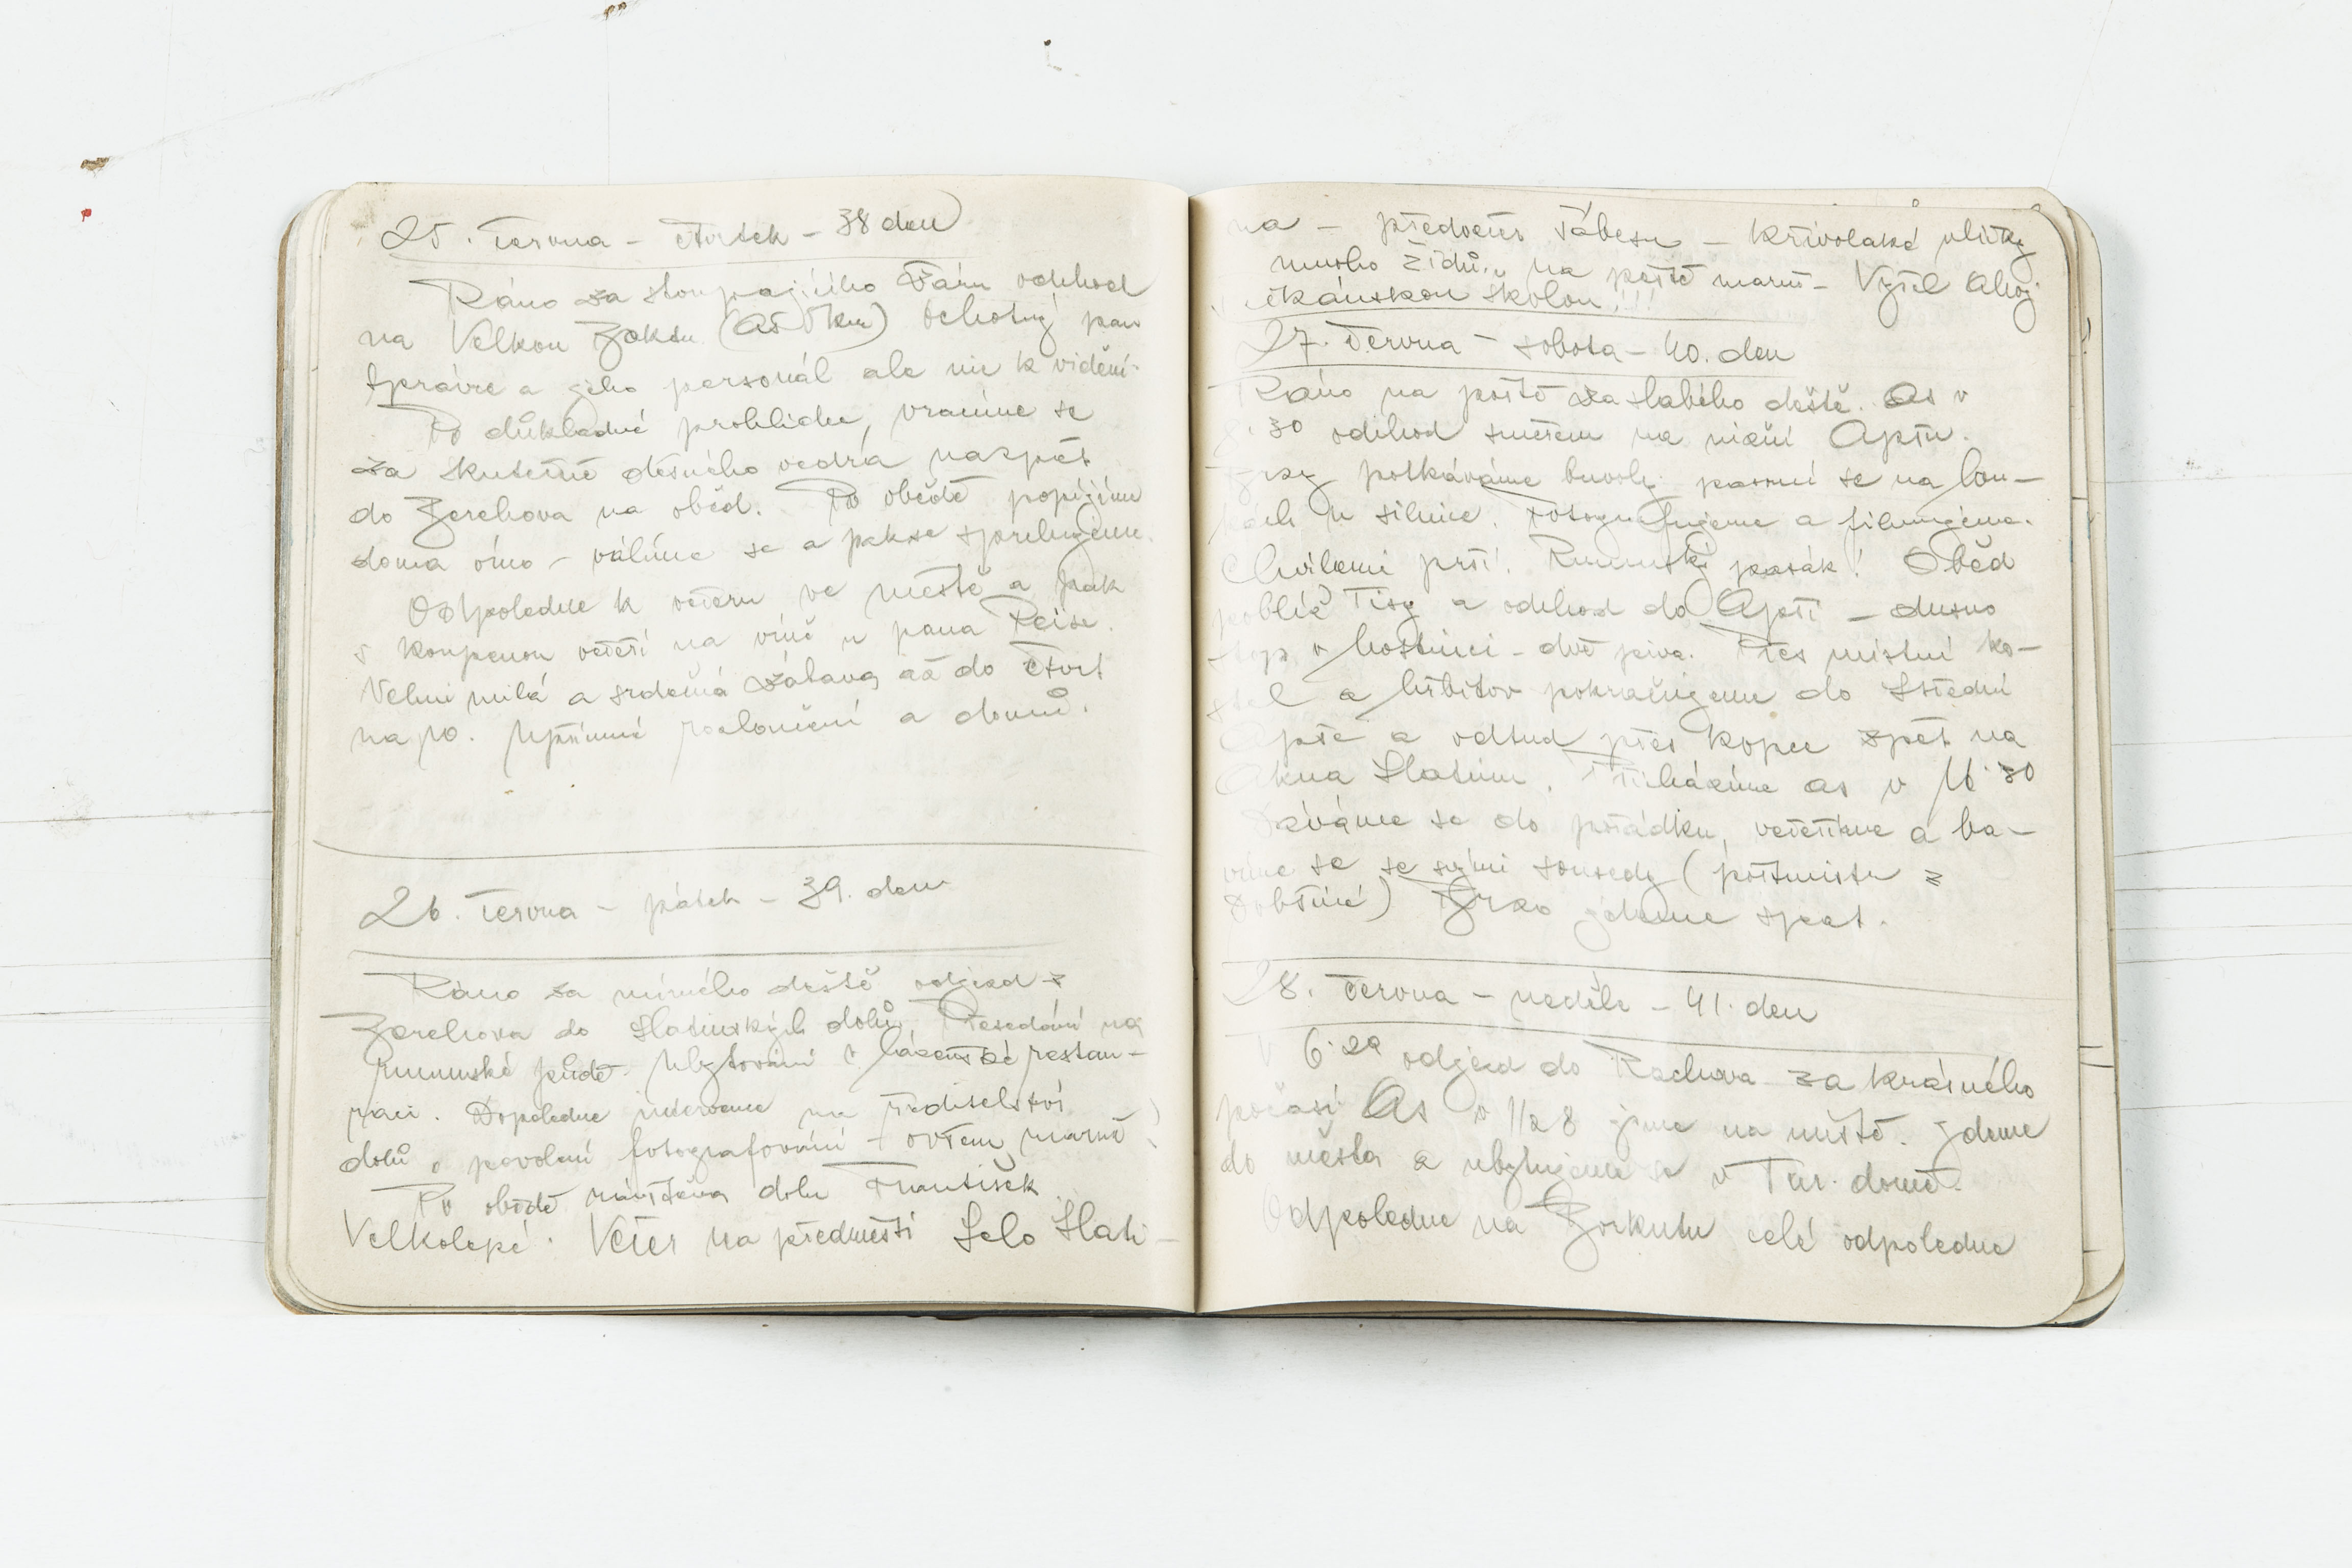 25. června – čtvrtek – 38 den
Ráno za stoupajícího žáru odchod
na Velkou (As km) Ochotný pan
správce a jeho personál ale nic k vidění.
Po důkladné prohlídce, vracíme se
za skutečně děsného vedra nazpět
do Terebova na oběd. Po obědě popíjíme
doma víno – válíme se a pak se sprchujeme.
Odpoledne k večeru ve městě a pak
s večeří na víně u pana Reise.
Velmi milá a srdečná zábava až do čtvrt
na 10. Upřímné rozloučení a domů.
26. června – pátek – 39. den
Ráno za mírného deště odjezd z
do Slatinských dolů. Přesedání na
rumunské půdě. Ubytování v lázeňské restau-
raci. Dopoledne intervence na ředitelství
dolů o povolení fotografování – ovšem marně!
Po obědě návštěva dolu František
Velkolepé. Večer na předměstí Selo Slati-
na – předvečer šábesu – křivolaké uličky
mnoho židů. na poště marně – Vyšel Ahoj
školou!!!
27. června – sobota – 40. den
Ráno na poště za slabého deště. As v
30 odchod směrem na nižní Apšu.
Brzy potkáváme buvoly pasoucí se na lou-
kách u silnice. Fotografujeme a filmujeme.
Chvílemi prší. Rumunský pasák! Oběd
poblíž Tisy a odchod do Apši – dusno
v hostinci – dvě piva. Přes místní ko-
stel a hřbitov pokračujeme do Střední
Apše a odtud přes kopce zpět na
Akna Slatinu. Přicházíme as v 16.30
Dáváme se do pořádku, večeříme a ba-
víme se se svými sousedy (poštmistr z
Dobšiné) Brzo jdeme spat.
28. června – neděle – 41. den
V 6.29 odjezd do Rachova za krásného
počasí. As v 1/2 8 jsme na místě. Jdeme
do města a ubytujeme se v Tur. domě.
Odpoledne na celé odpoledne